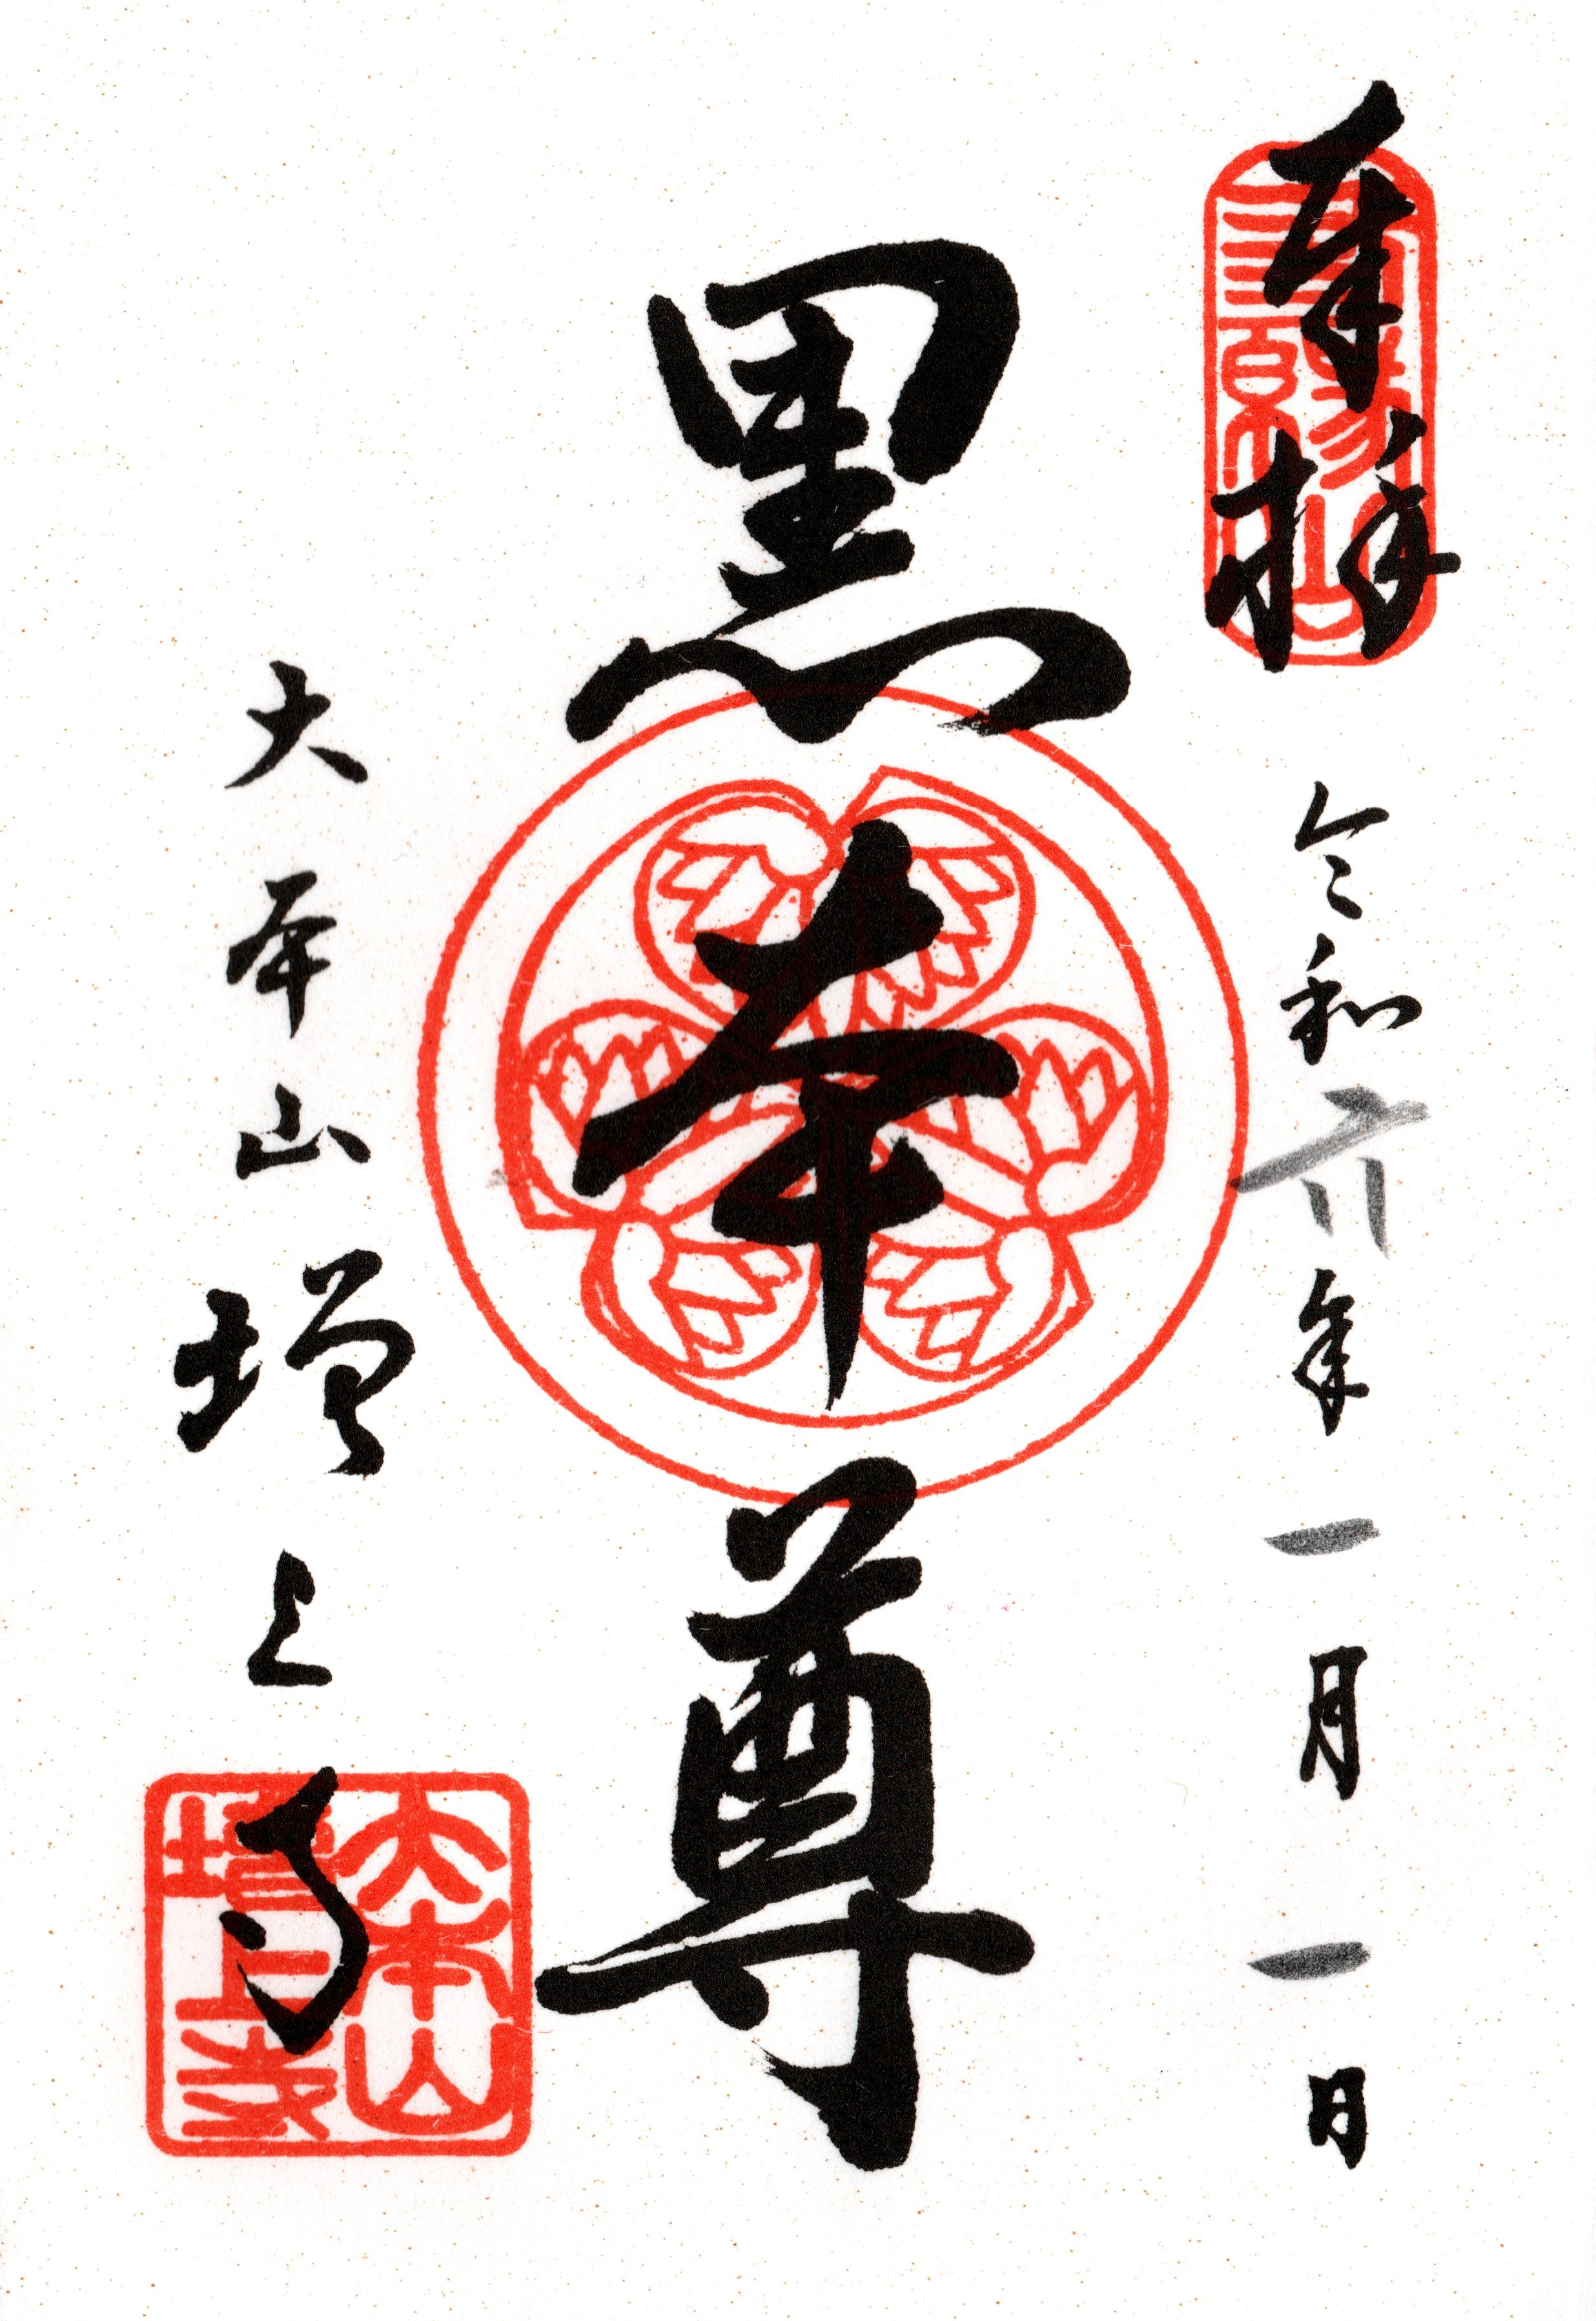 奉拝
令和六年一月一日
黒本尊
大本山増上寺
大本山
増上寺